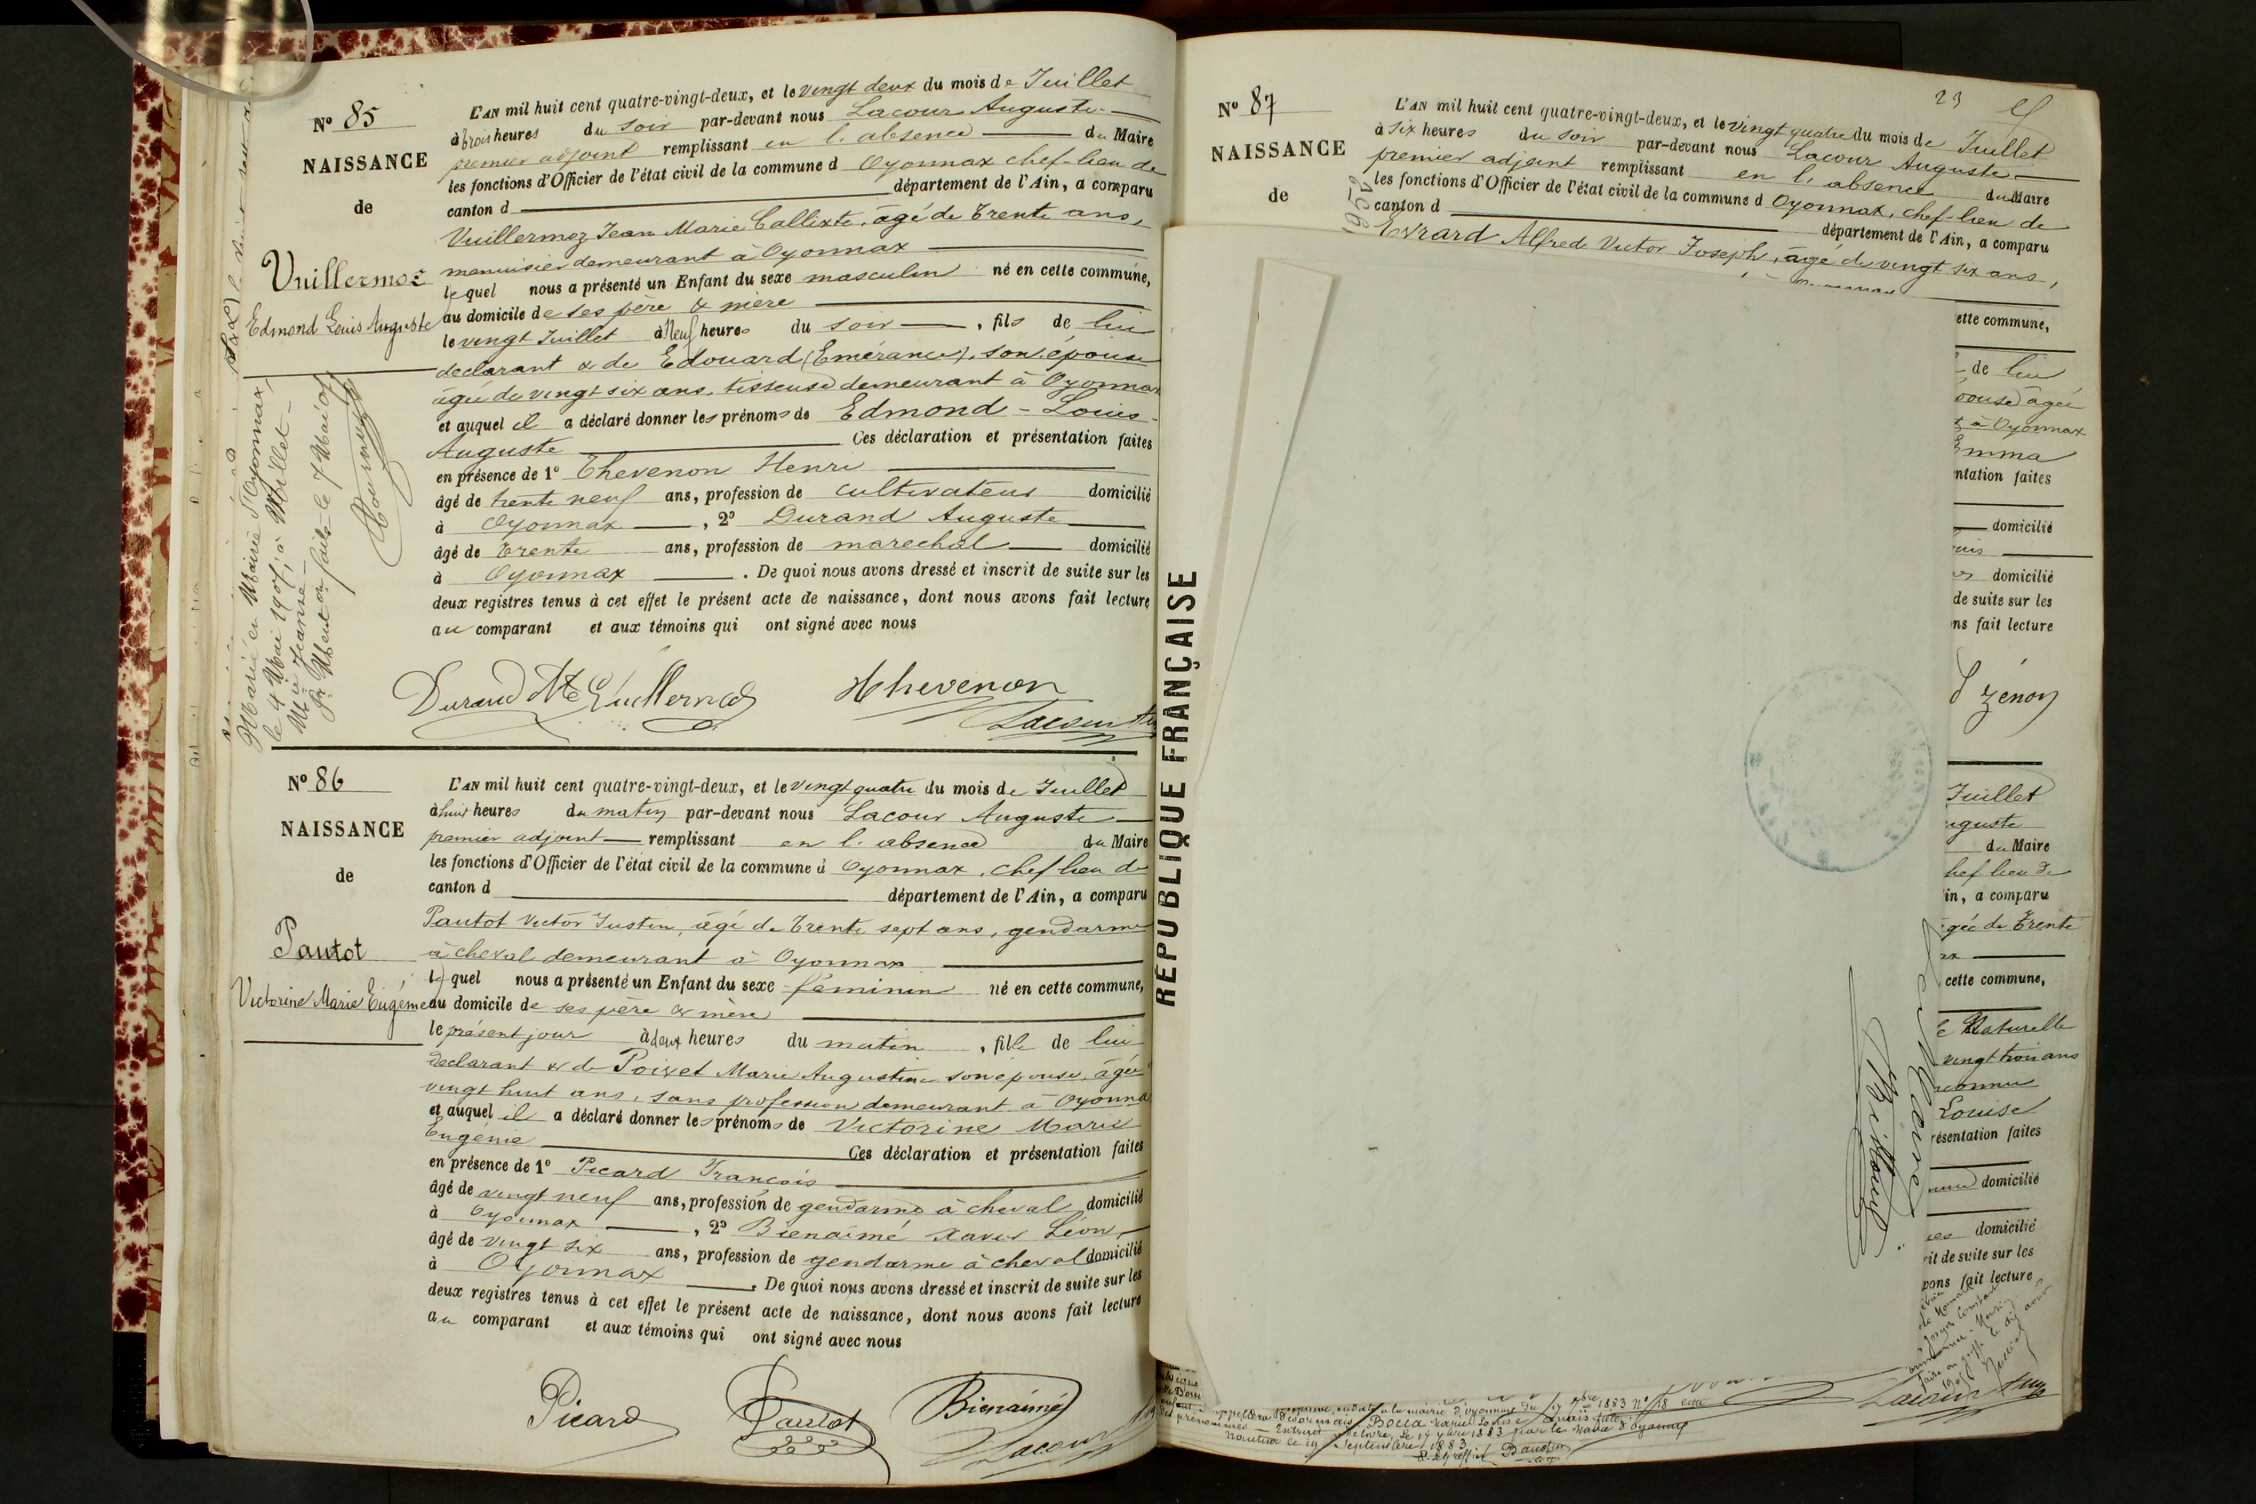 N° 85
NAISSANCE
de
Vuillermoz
Edmond Louis Auguste
L'AN mil huit cent quatre-vingt-deux, et le vingt deux du mois de Juillet
à trois heures du soir par-devant nous Lacour Auguste
premier adjoint remplissant en l'absence du Maire
les fonctions d'Officier de l'état civil de la commune d Oyonnax chef-lieu de
canton d département de l'Ain, a comparu
Vuillermoz Jean Marie Callixte, âgé de trente ans,
menuisier demeurant à Oyonnax
lequel nous a présenté un Enfant du sexe masculin né en cette commune,
au domicile de ses père & mère
le vingt Juillet à neuf heures du soir, fils de lui
declarant & de Edouard (Emérance), son épouse
âgée de vingt six ans, tisseuse demeurant à Oyonnax
et auquel il a déclaré donner les prénoms de Edmond - Louis -
Auguste Ces déclaration et présentation faites
en présence de 1° Thevenon Henri
âgé de trente neuf ans, profession de cultivateur domicilié
à Oyonnax, 2° Durand Auguste
âgé de trente ans, profession de marechal domicilié
à Oyonnax. De quoi nous avons dressé et inscrit de suite sur les
deux registres tenus à cet effet le présent acte de naissance, dont nous avons fait lecture
au comparant et aux témoins qui ont signé avec nous
Durand Vuillermoz HThevenon
Lacour
Marié en Mairie d'Oyonnax,
le 4 Mai 1907, à Millet
Mie Jeanne
Pr Mention faite le 7 Mai 07
N° 86
NAISSANCE
de
Pautot
Victorine Marie Eugénie
L'AN mil huit cent quatre-vingt-deux, et le vingt quatre du mois de Juillet
à huit heures du matin par-devant nous Lacour Auguste
premier adjoint remplissant en l'absence du Maire
les fonctions d'Officier de l'état civil de la commune d Oyonnax, chef lieu de
canton d département de l'Ain, a comparu
Pautot Victor Justin, âgé de trente sept ans, gendarme
à cheval demeurant à Oyonnax
lequel nous a présenté un Enfant du sexe féminin né en cette commune,
au domicile de ses père & mère
le présent jour à deux heures du matin, fille de lui
declarant & de Poivet Marie Augustine son épouse, âgée
vingt huit ans, sans profession demeurant à Oyonna
et auquel il a déclaré donner les prénoms de Victorine Marie
Eugénie Ces déclaration et présentation faites
en présence de 1° Picard François
âgé de vingt neuf ans, profession de gendarme à cheval domicilié
à Oyonnax, 2° Bienaimé Xavier Léon,
âgé de vingt six ans, profession de gendarme à cheval domicilié
à Oyonnax. De quoi nous avons dressé et inscrit de suite sur les
deux registres tenus à cet effet le présent acte de naissance, dont nous avons fait lecture
au comparant et aux témoins qui ont signé avec nous
Picard Pautot Bienaimé
Lacour
23
N° 87
NAISSANCE
de
L'AN mil huit cent quatre-vingt-deux, et le vingt quatre du mois de Juillet
à six heures du soir par-devant nous Lacour Auguste
premier adjoint remplissant en l'absence du Maire
les fonctions d'Officier de l'état civil de la commune d Oyonnax, chef-lieu de
canton d département de l'Ain, a comparu
Evrard Alfred Victor Joseph, âgé de vingt six ans,
RÉPUBLIQUE FRANÇAISE
ette commune,
de lui
pouse âgée
à Oyonnax
Emma
ntation faites
domicilié
domicilié
de suite sur les
ns fait lecture
Zénon
Juillet
uguste
du Maire
hef lieu de
in, a comparu
gée de trente
cette commune,
Naturelle
vingt trois ans
Louise
résentation faites
domicilié
domicilié
rit de suite sur les
vons fait lecture
Lacour Aug